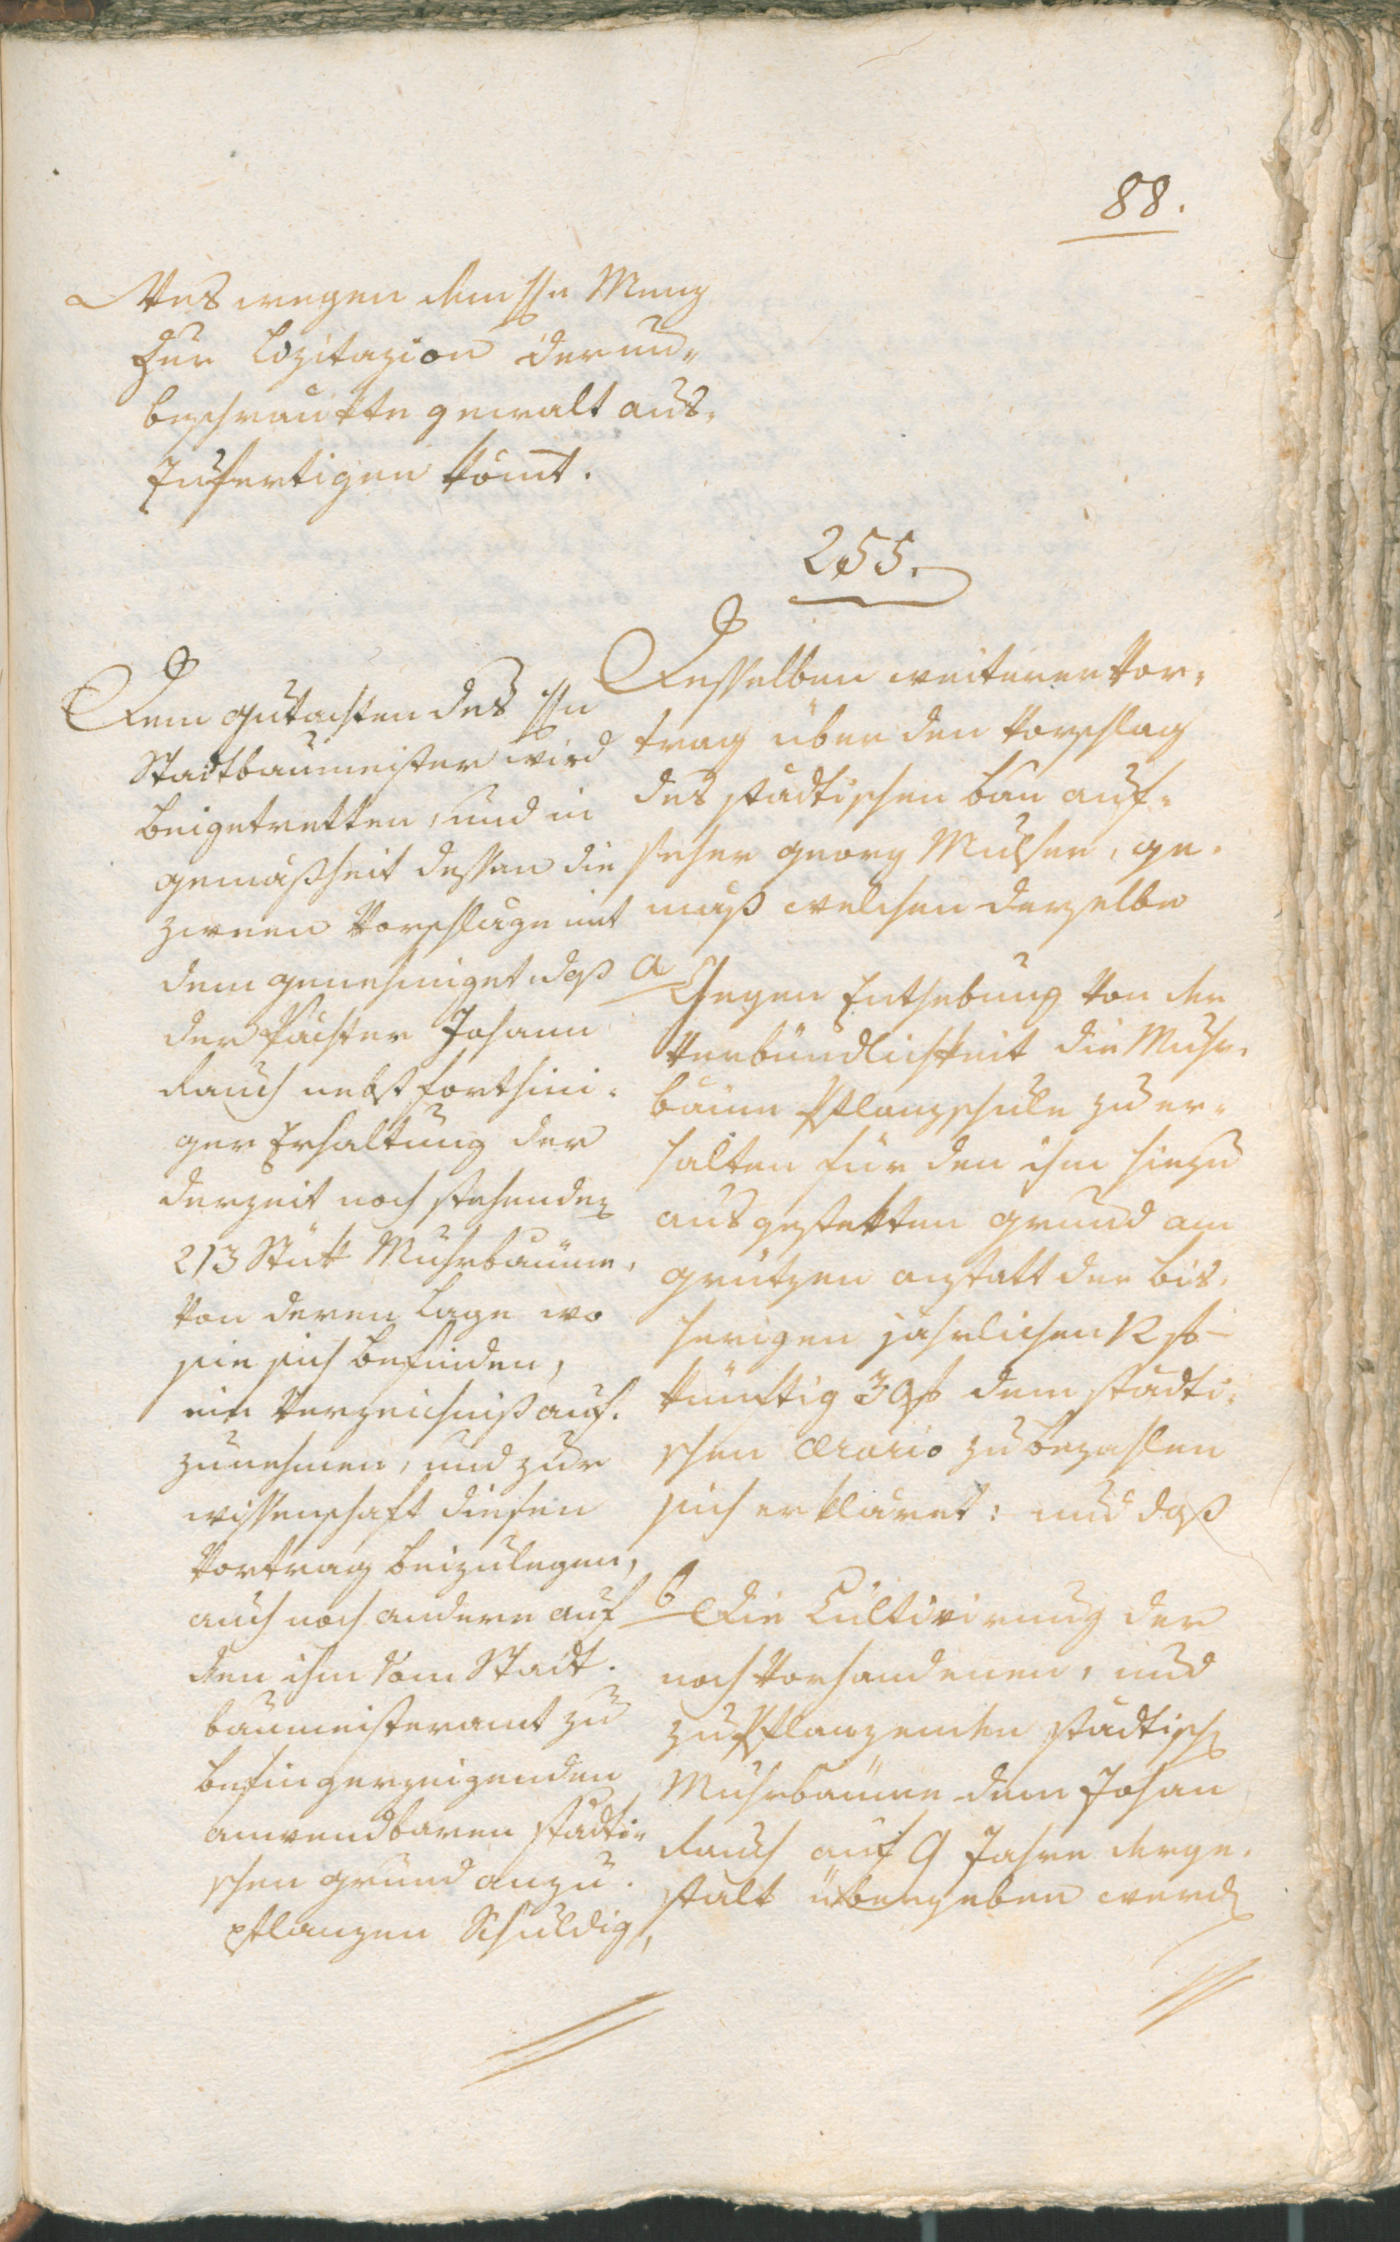 88.
Weswegen dem Hn Menz
zur Lizitazion der un-
beschrankte gewalt aus-
zufertigen kömt.
255.
Dem gutachten des Hn
Stadtbaumeister wird
beigetretten, und in
gemäßheit dessen die
zween Vorschläge mit
dem genehmiget, daß
der Pächter Johann
Rauch nebst forthini-
ger Erhaltung der
derzeit noch stehenden
213 Stük Muhrbäume,
von deren Lage wo
sie sich befinden,
ein Verzeichniß auf-
zunehmen, und zur
wissenschaft diesen
Vortrag beizulegen,
auch noch andere auf
den ihm vom Stadt-
baumeisteramt zu
befingerzeigenden
anwendbaren städti-
schen grund anzu-
pflanzen Schuldig,
Desselben weiterer Vor-
trag über den Vorschlag
des städtischen bau auf-
seher georg Mulser, ge-
mäß welchen derselbe
a Gegen Enthebung von der
Verbündlichkeit die Muhr-
bäum Pflanzschule zu er-
halten für den ihm hiezu
ausgestekten grund am
grützen anstatt der bis-
herigen jährlichen 12 f
künftig 30 f dem städti-
schen Ærario zu bezahlen
sich erkläret: und daß
b Die Cultivirung der
noch vorhandenen, und
zupflanzenden städtisch
Muhrbäume dem Johan
Rauch auf 9 Jahre derge-
stalt übergeben werd